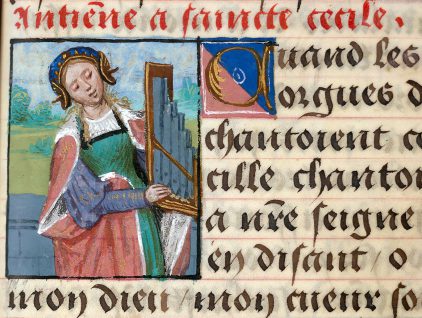 Antiēne a saincte cecile.
Quand les
orgues d
chantoient ce
cille chantoi
a nr̄e seigne
en disant / o
mon dieu / mon cueur so